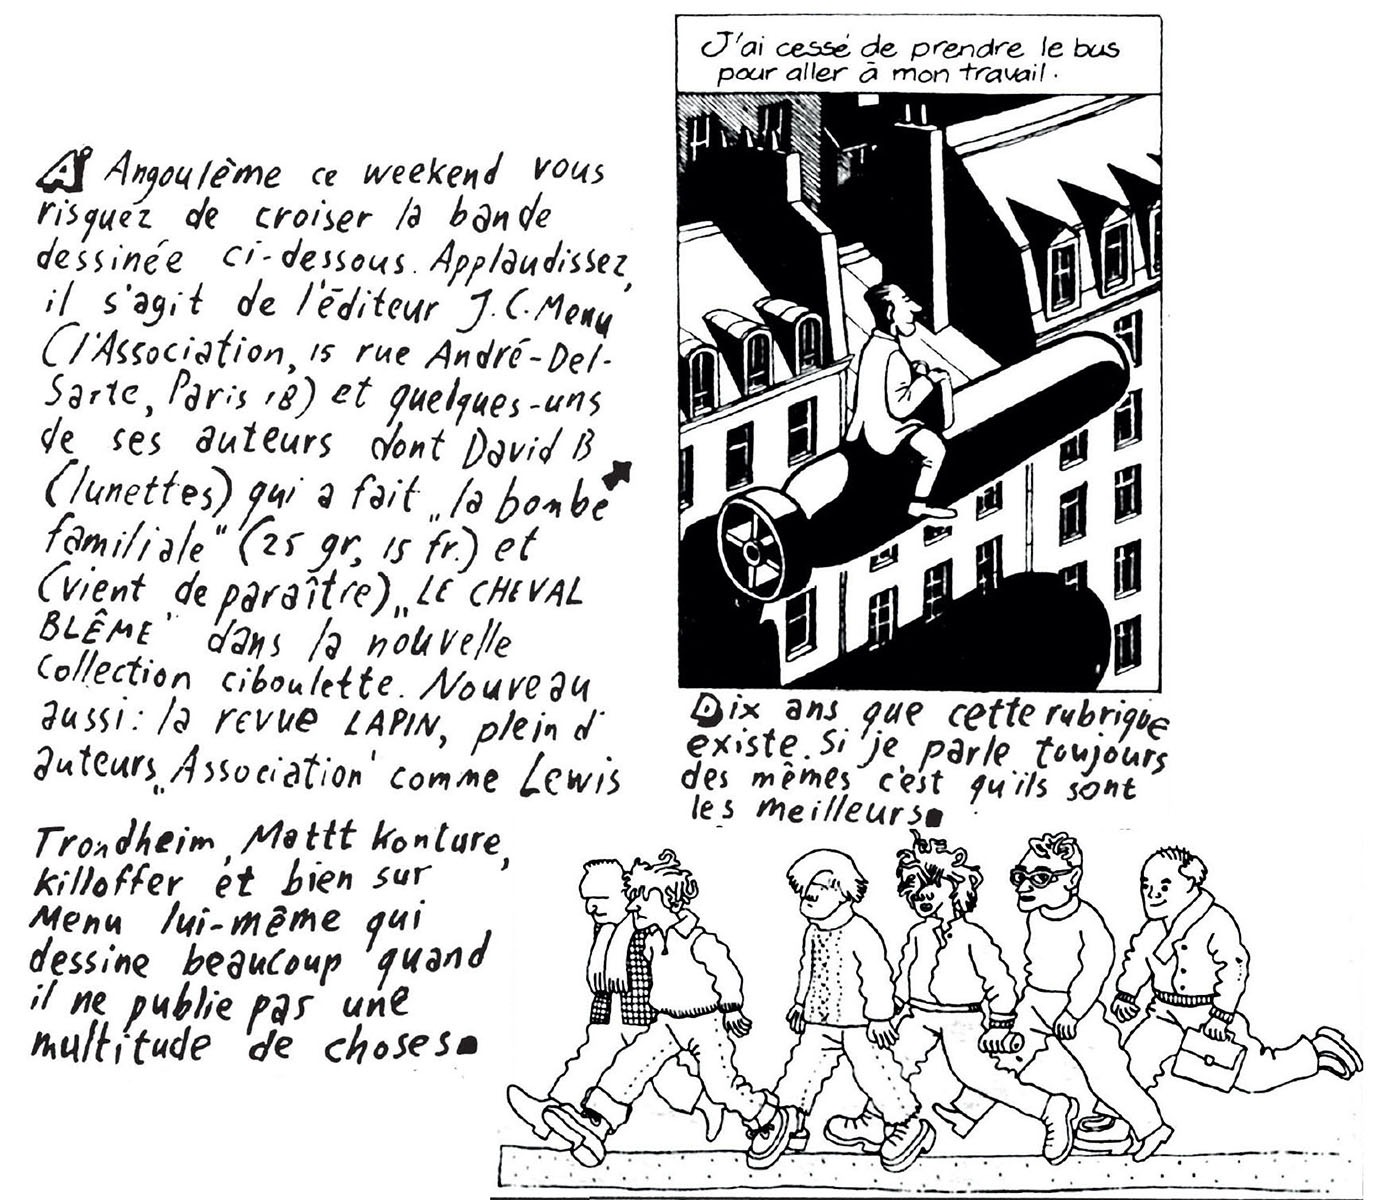 A Angoulême ce weekend vous
risquez de croiser la bande
dessinée ci-dessous. Applaudissez,
il s'agit de l'éditeur J.C. Menu
(l'Association, 15 rue André-Del-
Sarte, Paris 18) et quelques-uns
de ses auteurs dont David B
(lunettes) qui a fait „la bombe
familiale" (25 gr, 15 fr.) et
(vient de paraître) „LE CHEVAL
BLÊME" dans la nouvelle
collection ciboulette. Nouveau
aussi: la revue LAPIN, plein d'
auteurs „Association' comme Lewis
Trondheim, Mattt Konture,
Killoffer et bien sur
Menu lui-même qui
dessine beaucoup quand
il ne publie pas une
multitude de choses.
J'ai cessé de prendre le bus
pour aller à mon travail.
Dix ans que cette rubrique
existe. Si je parle toujours
des mêmes c'est qu'ils sont
les meilleurs.